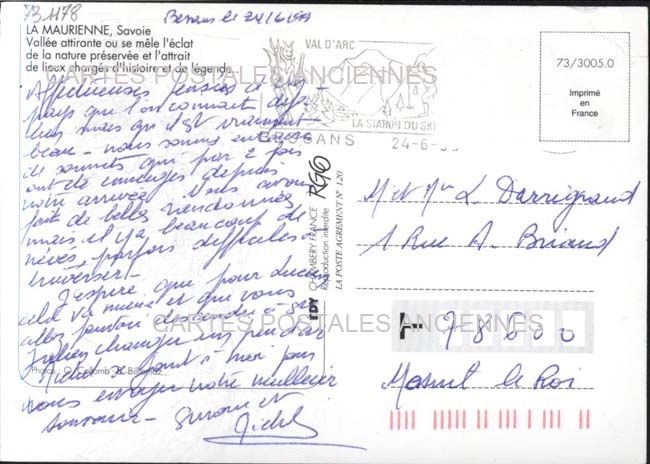 73.1178
Bessans le 24/6/99
LA MAURIENNE, Savoie
Vallée attirante ou se mêle l'éclat
de la nature préservée et l'attrait
de lieux chargés d'histoire et de légende.
VAL D'ARC
LA STATION DU SKI
BESSANS 24-6-
73/3005.0
Imprimé
en
France
CARTES POSTALES ANCIENNES
Affectueuses pensées d'un
pays que l'on connait
mais qu'il est vraiment
beau - nous sommes entourés
de sommets qui par 2 fois
ont été enneigés depuis
notre arrivée. Nous avons
fait de belles randonnées
mais il y a beaucoup de
névés, parfois difficiles à
traverser -
J'espère que pour
cela va mieux et que vous
allez pouvoir descendre
changer un peu d'air
Michel se joint à moi pour
vous envoyer notre meilleur
souvenir - Suzanne et
Michel
Photos :
RG6
EDY CHAMBERY FRANCE
Reproduction interdite
LA POSTE AGREMENT N° 120
M et Mme L. Darrigrand
1 Rue A. Briand
CARTES POSTALES ANCIENNES
78600
Mesnil le Roi